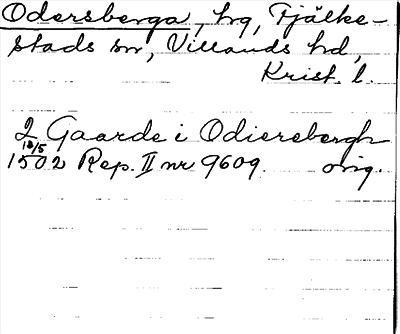 Odersberga, hg, Fjälke-
stads sn, Villands hd,
Krist. l.
2 Gaarde i Odierebergh
13/5
1502 Rep. II nr 9609. orig.